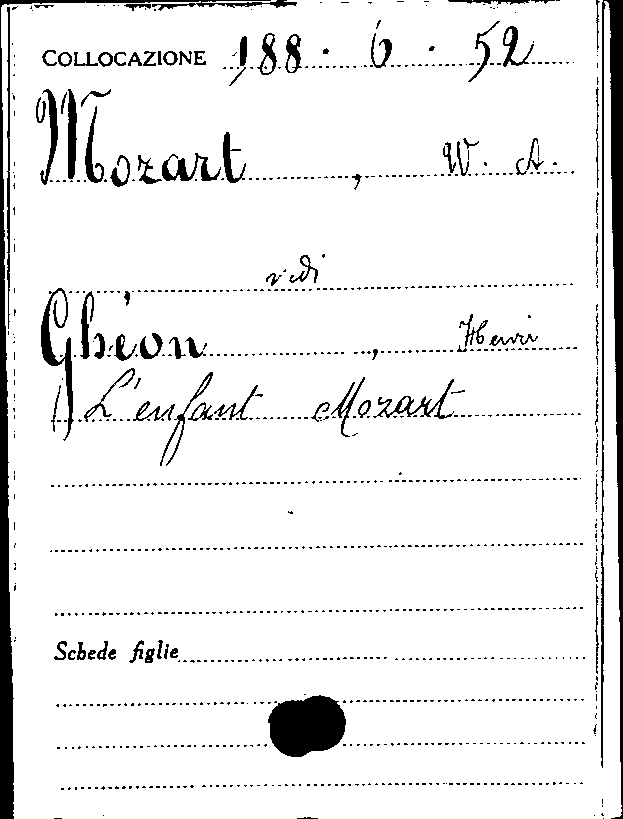 COLLOCAZIONE 188 · 6 · 52
Mozart , W. A.
vedi
Ghéon , Henri
L'enfant Mozart
Schede figlie